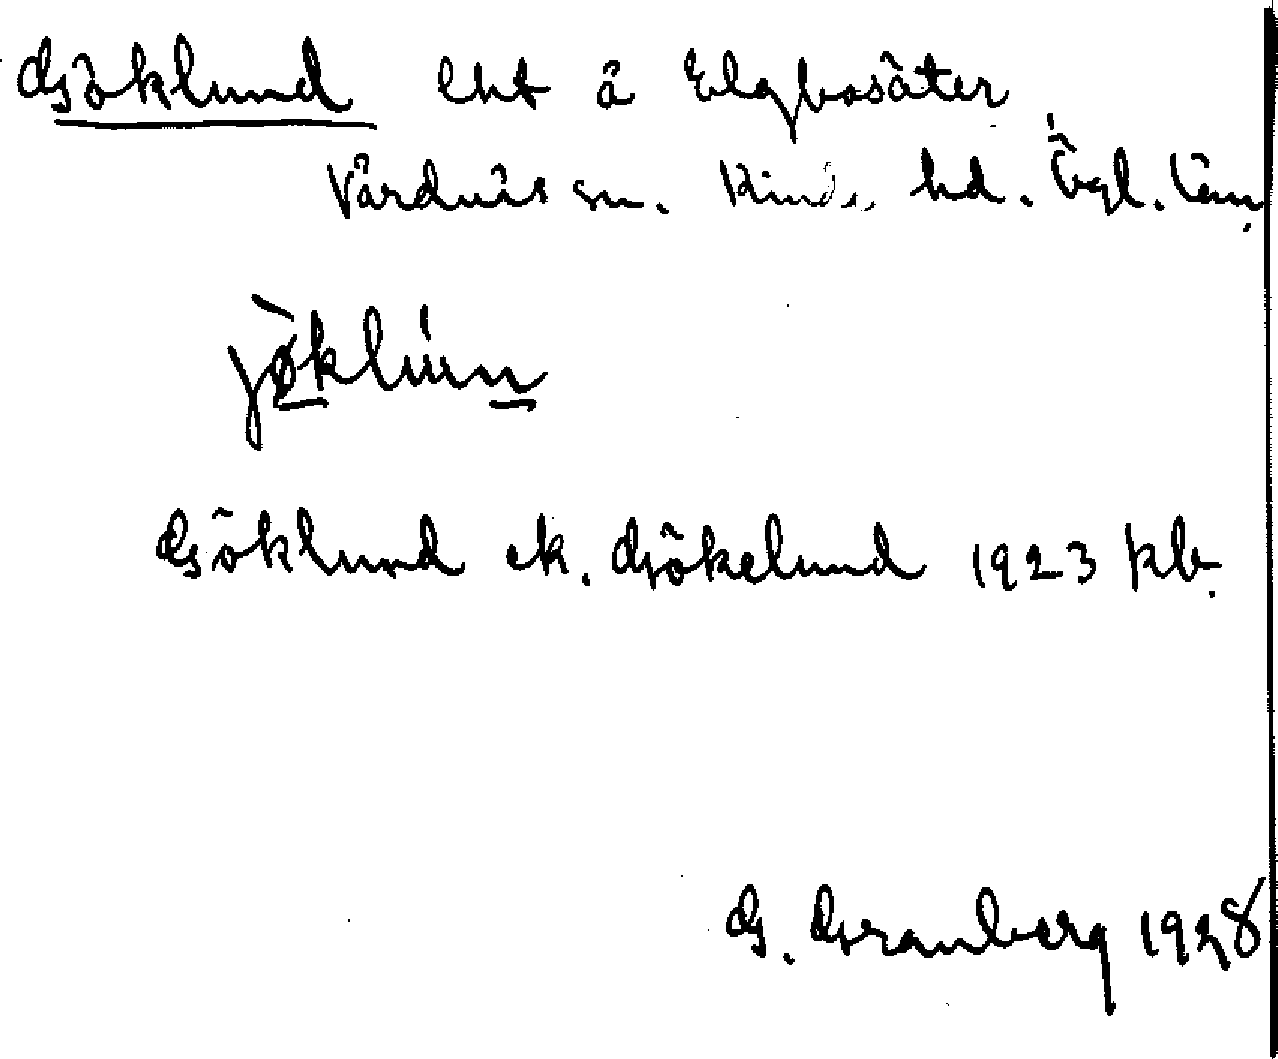 Göklund lht å Elgbosäter
Vårdnäs sn. Kinds hd. Ögl. län
jø̀klún
Göklund ek. Gjökelund 1923 kb.
G. Granberg 1928